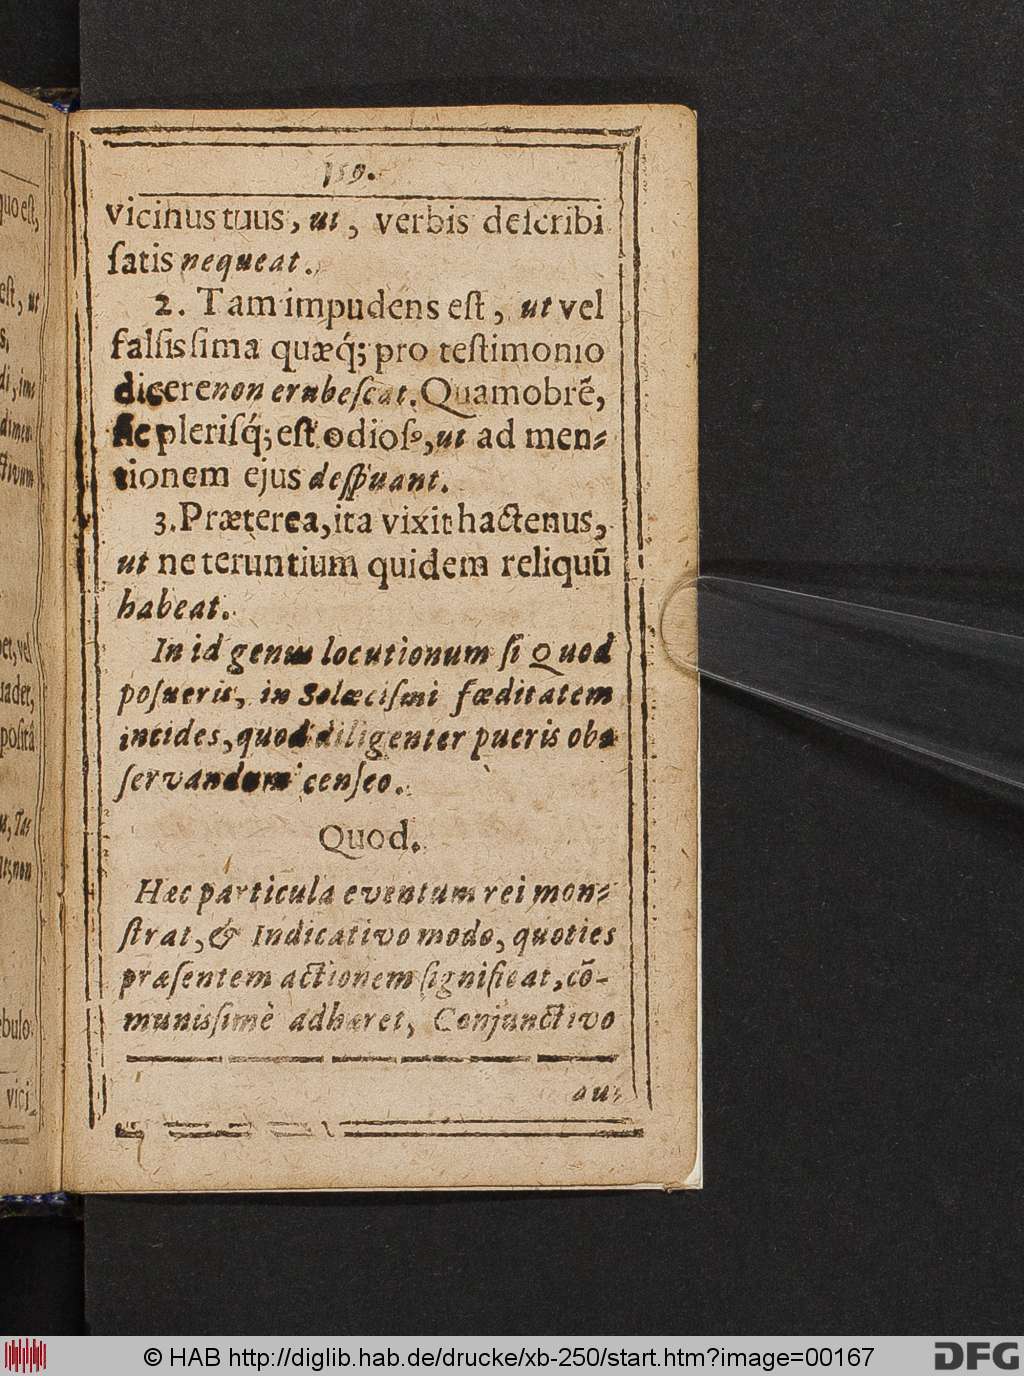 159.
vicinus tuus, ut, verbis deſcribi
ſatis nequeat.
2. Tam impudens eſt, ut vel
falſisſima quæq́; pro teſtimonio
dicere non erubeſcat. Quamobrẽ,
ſic pleriſq́; eſt odioſꝰ, ut ad men-
tionem ejus deſpuant.
3. Præterea, ita vixit hactenus,
ut ne teruntium quidem reliquũ
habeat.
In id genus locutionum ſi Quod
poſueris, in Solœciſmi fœditatem
incides, quod diligenter pueris ob-
ſervandum cenſeo.
Quod.
Hæc particula eventum rei mon-
ſtrat, & Indicativo modo, quoties
præſentem actionem ſignificat, cõ-
munisſimè adhæret, Conjunctivo
au-
quo eſt,
eſt, ut
vici
© HAB http://diglib.hab.de/drucke/xb-250/start.htm?image=00167
DFG